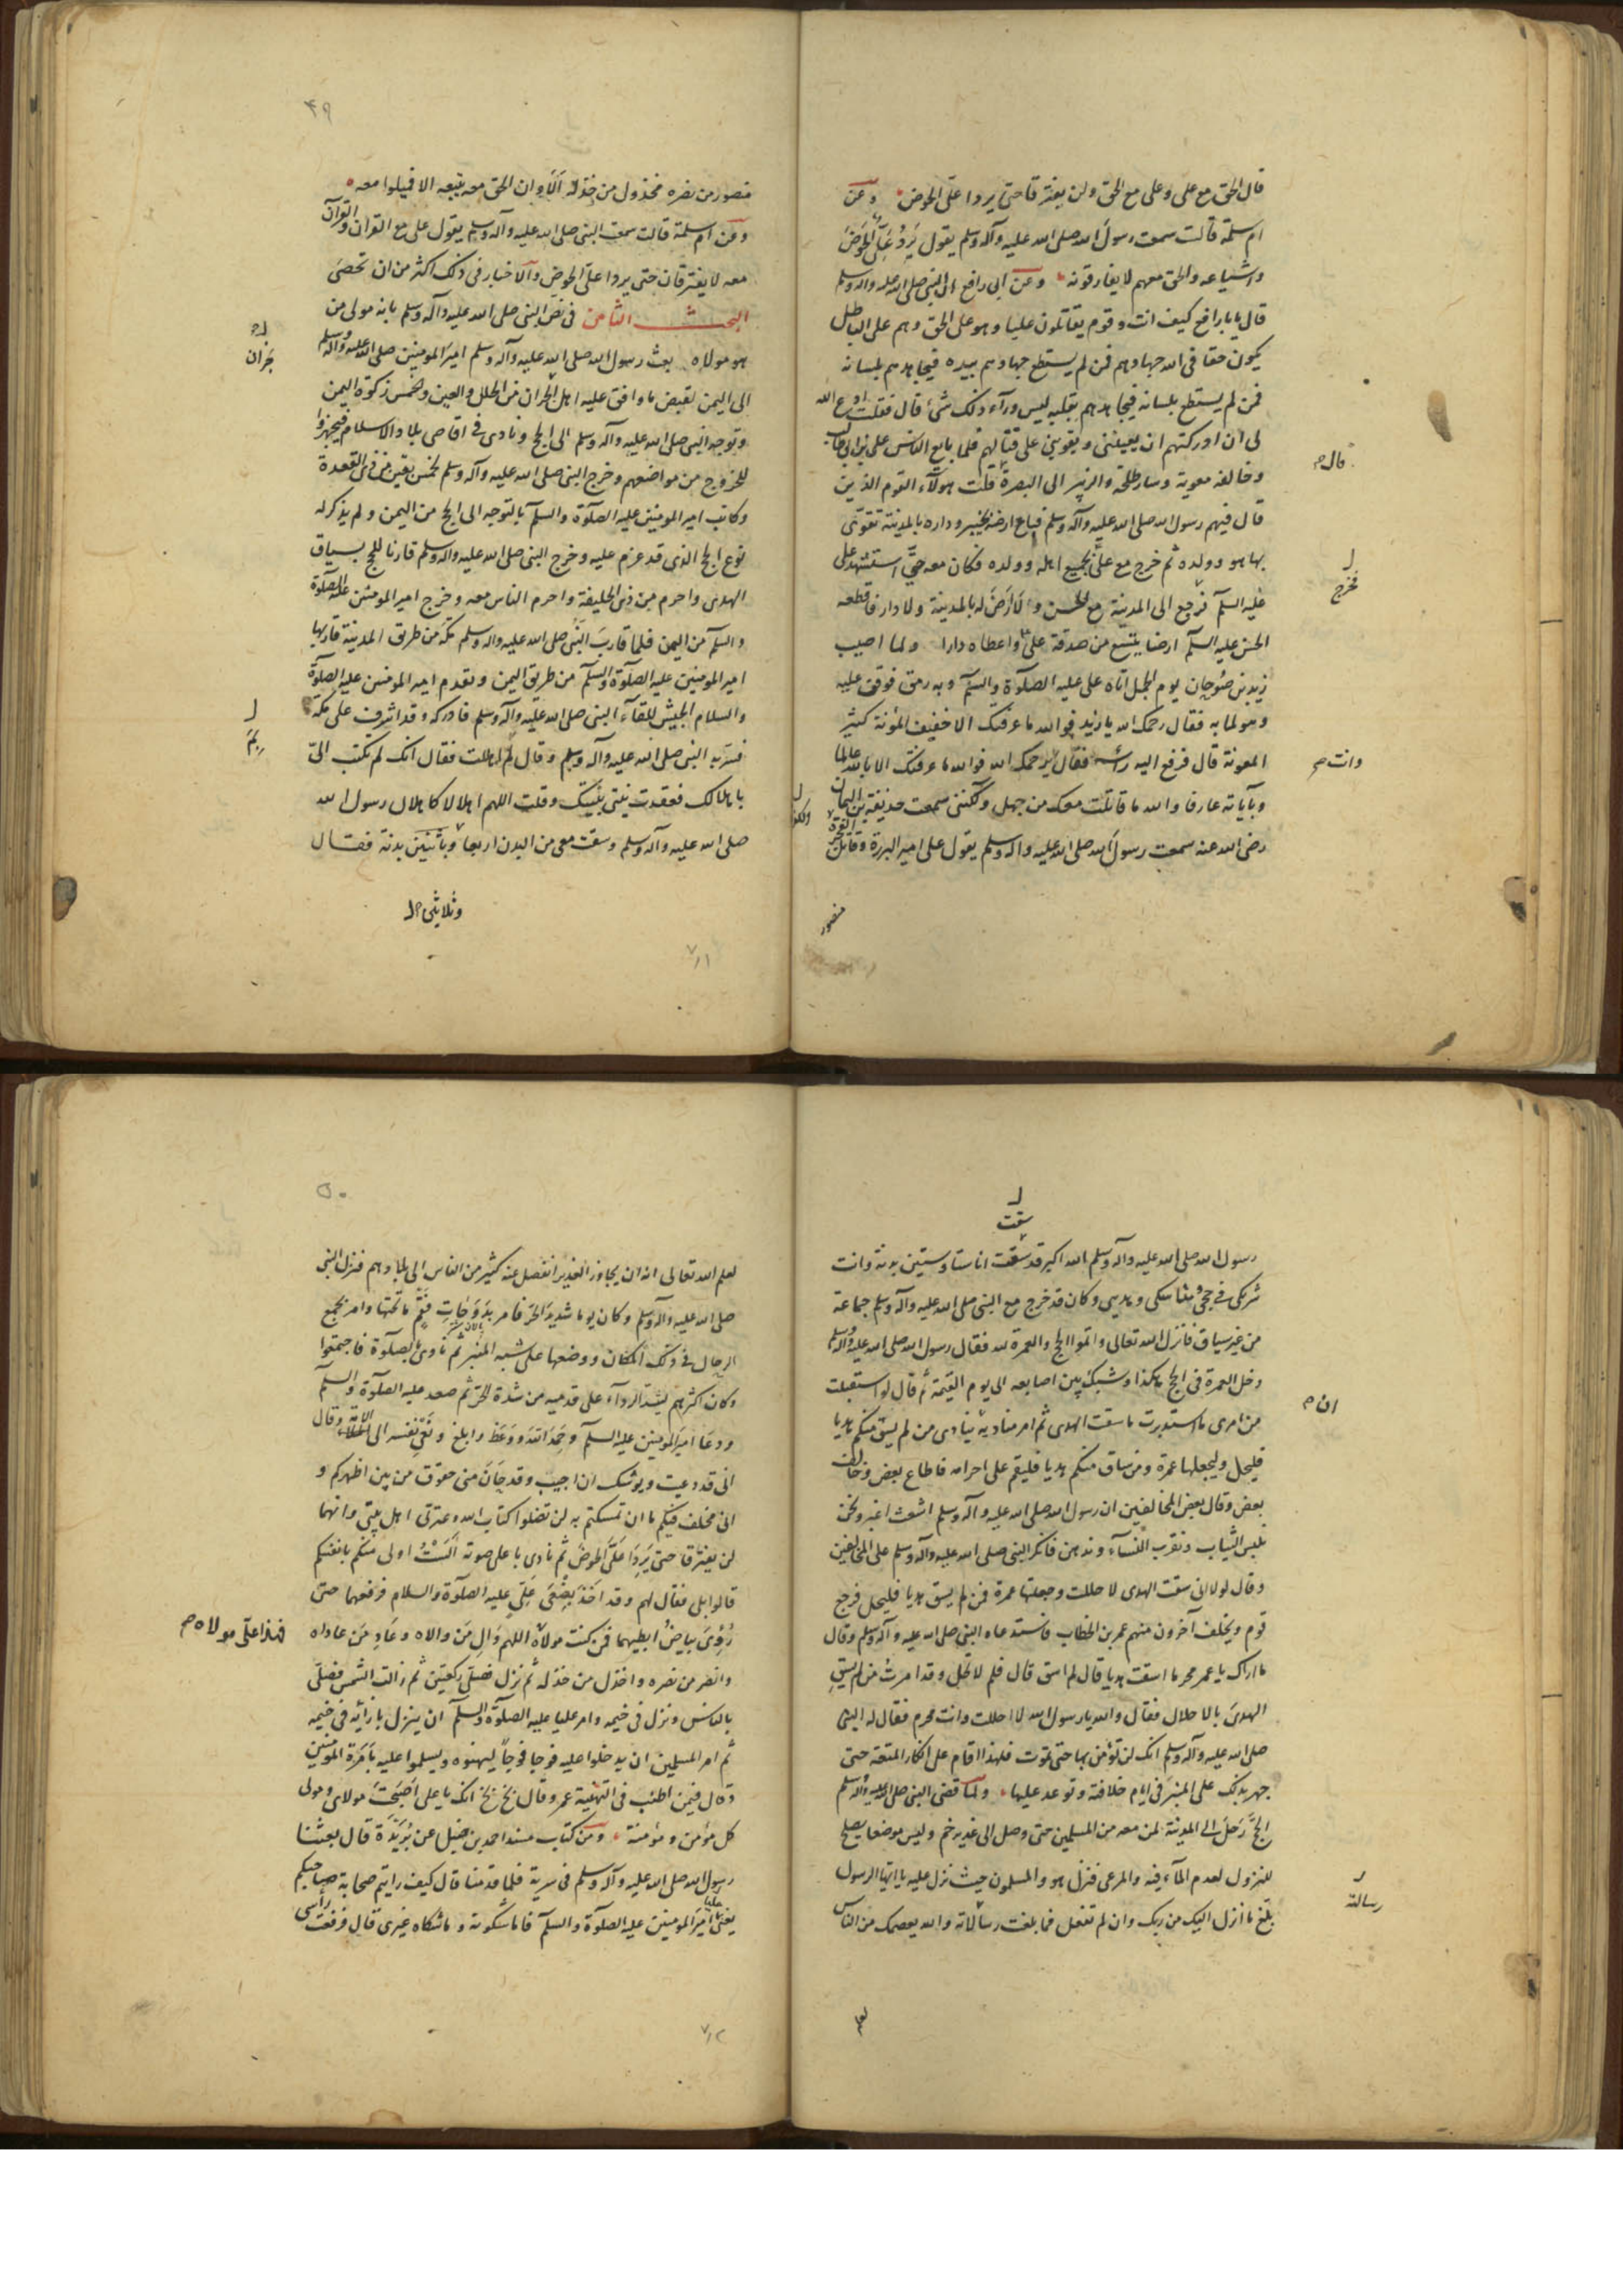 قال الحق مع على وعلى مع الحق ولن يفترقا حتى يردا علىّ الحوض وعن
ام سلمة قالت سمعت رسول الله صلى الله عليه وآله وسلم يقول يرد علىّ الحوض
واشياعه والحق معهم لا يفارقونه وعن ابى رافع ان النبى صلى الله عليه وآله وسلم
قال يا با رافع كيف انت وقوم يقاتلون عليا وهو على الحق وهم على الباطل
يكون حقا فى الله جهادهم فمن لم يستطع جهادهم بيده فيجاهدهم بلسانه
فمن لم يستطع بلسانه فيجاهدهم بقلبه ليس وراء ذلك شئ قال فقلت ادع الله
لى ان ادركتهم ان يعيننى ويقوينى على قتالهم فلما بايع الناس على بن ابى طالب
وخالفه معوية وسار طلحة والزبير الى البصرة قلت هولآء القوم الذين
قال فيهم رسول الله صلى الله عليه وآله وسلم فباع ارضه بخيبر وداره بالمدينة تقوى
بها هو وولده ثم خرج مع علىّ بجميع اهله وولده فكان معه حتى استشهد على
عليه السلم فرجع الى المدينة مع الحسن ولا ارض له بالمدينة ولا دار فاقطعه
الحسن عليه السلم ارضا بينبع من صدقة على واعطاه دارا ولما اصيب
زيد بن صوحان يوم الجمل اتاه على عليه الصلوة والسلم وبه رمق فوقف عليه
وهو لما به فقال رحمك الله يا زيد فوالله ما عرفتك الا خفيف المؤنة كثير
المعونة قال فرفع اليه رأسه فقال يرحمك الله فوالله ما عرفتك الا بالله عالما
وبآياته عارفا والله ما قاتلت معك من جهل ولكننى سمعت حذيفة بن اليمان
رضى الله عنه سمعت رسول الله صلى الله عليه وآله وسلم يقول على امير البررة وقاتل الفجرة
منصور
قال
فخرج
وانت
٤٩
منصور من نصره مخذول من خذله الا وان الحق معه يتبعه الا فميلوا معه
وعن ام سلمة قالت سمعت النبى صلى الله عليه وآله وسلم يقول على مع القران والقرآن
معه لا يفترقان حتى يردا علىّ الحوض والاخبار فى ذلك اكثر من ان تحصى
البحث الثامن فى نص النبى صلى الله عليه وآله وسلم بانه مولى من
هو مولاه بعث رسول الله صلى الله عليه وآله وسلم امير المومنين صلى الله عليه وآله وسلم
الى اليمن لقبض ما وافق عليه اهل نجران من الحلل والعين ولخمس زكوة اليمن
وتوجه النبى صلى الله عليه وآله وسلم الى الحج ونادى فى اقاصى بلاد الاسلام فتجهزوا
للخروج من مواضعهم وخرج النبى صلى الله عليه وآله وسلم لخمس بقين من ذى القعدة
وكاتب امير المومنين عليه الصلوة والسلم بالتوجه الى الحج من اليمن ولم يذكر له
نوع الحج الذى قد عزم عليه وخرج النبى صلى الله عليه وآله وسلم قارنا للحج بسياق
الهدى واحرم من ذى الحليفة واحرم الناس معه وخرج امير المومنين عليه الصلوة
والسلم من اليمن فلما قارب النبى صلى الله عليه وآله وسلم مكة من طريق المدينة قاربها
امير المومنين عليه الصلوة والسلم من طريق اليمن وتقدم امير المومنين عليه الصلوة
والسلام الجيش للقاء النبى صلى الله عليه وآله وسلم فادركه وقد اشرف على مكة
فسر به النبى صلى الله عليه وآله وسلم وقال بم اهللت فقال انك لم تكتب الىّ
باهلالك فعقدت نيتى بنيتك وقلت اللهم اهلالا كاهلال رسول الله
صلى الله عليه وآله وسلم وسقت معى من البدن اربعا وثلاثين بدنة فقال
نجران
بم
وثلاثين
سقت
رسول الله صلى الله عليه وآله وسلم الله اكبر قد سقت انا ستا وستين بدنة وانت
شريكى فى حجى ومناسكى وهديى وكان قد خرج مع النبى صلى الله عليه وآله وسلم جماعة
من غير سياق فانزل الله تعالى واتموا الحج والعمرة لله فقال رسول الله صلى الله عليه وآله وسلم
دخل العمرة فى الحج هكذا وشبك بين اصابعه الى يوم القيمة ثم قال لو استقبلت
من امرى ما استدبرت ما سقت الهدى ثم امر مناديه ينادى من لم يسق منكم هديا
فليحل وليجعلها عمرة ومن ساق منكم هديا فليقم على احرامه فاطاع بعض وخالف
بعض وقال بعض المخالفين ان رسول الله صلى الله عليه وآله وسلم اشعث اغبر ونحن
نلبس الثياب ونقرب النساء وندهن فانكر النبى صلى الله عليه وآله وسلم على المخالفين
وقال لولا انى سقت الهدى لاحللت وجعلتها عمرة فمن لم يسق هديا فليحل فرجع
قوم وتخلف آخرون منهم عمر بن الخطاب فاستدعاه النبى صلى الله عليه وآله وسلم وقال
ما اراك يا عمر محرما اسقت هديا قال لم اسق قال فلم لا تحل وقد امرت من لم يسق
الهدى بالاحلال فقال والله يا رسول الله لا احللت وانت محرم فقال له النبى
صلى الله عليه وآله وسلم انك لن تؤمن بها حتى تموت فلهذا اقام على انكار المتعة حتى
جهر بذلك على المنبر فى ايام خلافته وتوعد عليها ولما قضى النبى صلى الله عليه وآله وسلم
الحج رحل الى المدينة بمن معه من المسلمين حتى وصل الى غدير خم وليس موضعا يصلح
للنزول لعدم الماء فيه والمرعى فنزل هو والمسلمون حيث نزل عليه يا ايها الرسول
بلغ ما انزل اليك من ربك وان لم تفعل فما بلغت رسالاته والله يعصمك من الناس
لعلم
ان
رسالته
٥٠
لعلم الله تعالى انه ان يجاوز الغدير انفصل عنه كثير من الناس الى بلادهم فنزل النبى
صلى الله عليه وآله وسلم وكان يوما شديد الحر فامر بدوحات فقم ما تحتها وامر بجمع
الرحال فى ذلك المكان ووضعها على شبه المنبر ثم نادى بالصلوة فاجتمعوا
وكان اكثرهم يشد الرداء على قدميه من شدة الحر ثم صعد عليه الصلوة والسلم
ودعا امير المومنين عليه السلم وحمد الله ووعظ وابلغ ونعى نفسه الى الامة وقال
انى قد دعيت ويوشك ان اجيب وقد حان منى خفوق من بين اظهركم و
انى مخلف فيكم ما ان تمسكتم به لن تضلوا كتاب الله وعترتى اهل بيتى وانهما
لن يفترقا حتى يردا علىّ الحوض ثم نادى باعلى صوته الست اولى منكم بانفسكم
قالوا بلى فقال لهم وقد اخذ بضبعى علىّ عليه الصلوة والسلام فرفعهما حتى
رؤى بياض ابطيهما فمن كنت مولاه اللهم وال من والاه وعاد من عاداه
وانصر من نصره واخذل من خذله ثم نزل فصلى ركعتين ثم زالت الشمس فصلى
بالناس ونزل فى خيمه وامر عليا عليه الصلوة والسلم ان ينزل بازائه فى خيمه
ثم امر المسلمين ان يدخلوا عليه فوجا فوجا ليهنوه ويسلموا عليه بامرة المومنين
وكان فيمن اطنب فى التهنية عمر وقال بخ بخ انك يا على اصبحت مولاى ومولى
كل مؤمن ومؤمنة ومن كتاب مسند احمد بن حنبل عن بريدة قال بعثنا
رسول الله صلى الله عليه وآله وسلم فى سرية فلما قدمنا قال كيف رايتم صحابة صاحبكم
يعنى امير المومنين عليه الصلوة والسلم فاما شكوته وما شكاه غيرى قال فرفعت رأسى
فهذا علىّ مولاه